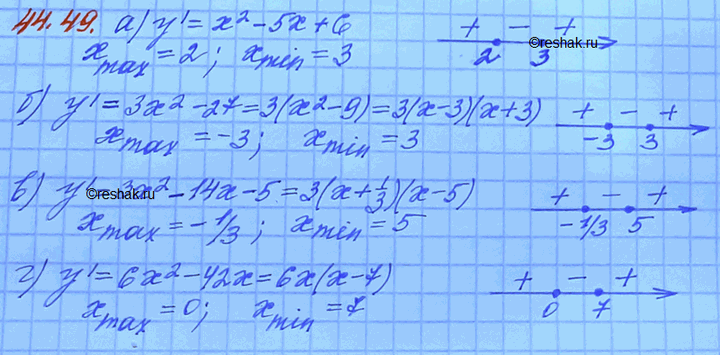 44.49. а) y' = x² - 5x + 6
x_max = 2; x_min = 3
+ - +
2 3
©reshak.ru
б) y' = 3x² - 27 = 3(x² - 9) = 3(x - 3)(x + 3)
x_max = -3; x_min = 3
+ - +
-3 3
в) y' = 3x² - 14x - 5 = 3(x + 1/3)(x - 5)
©reshak.ru
x_max = -1/3; x_min = 5
+ - +
-1/3 5
г) y' = 6x² - 42x = 6x(x - 7)
x_max = 0; x_min = 7
+ - +
0 7